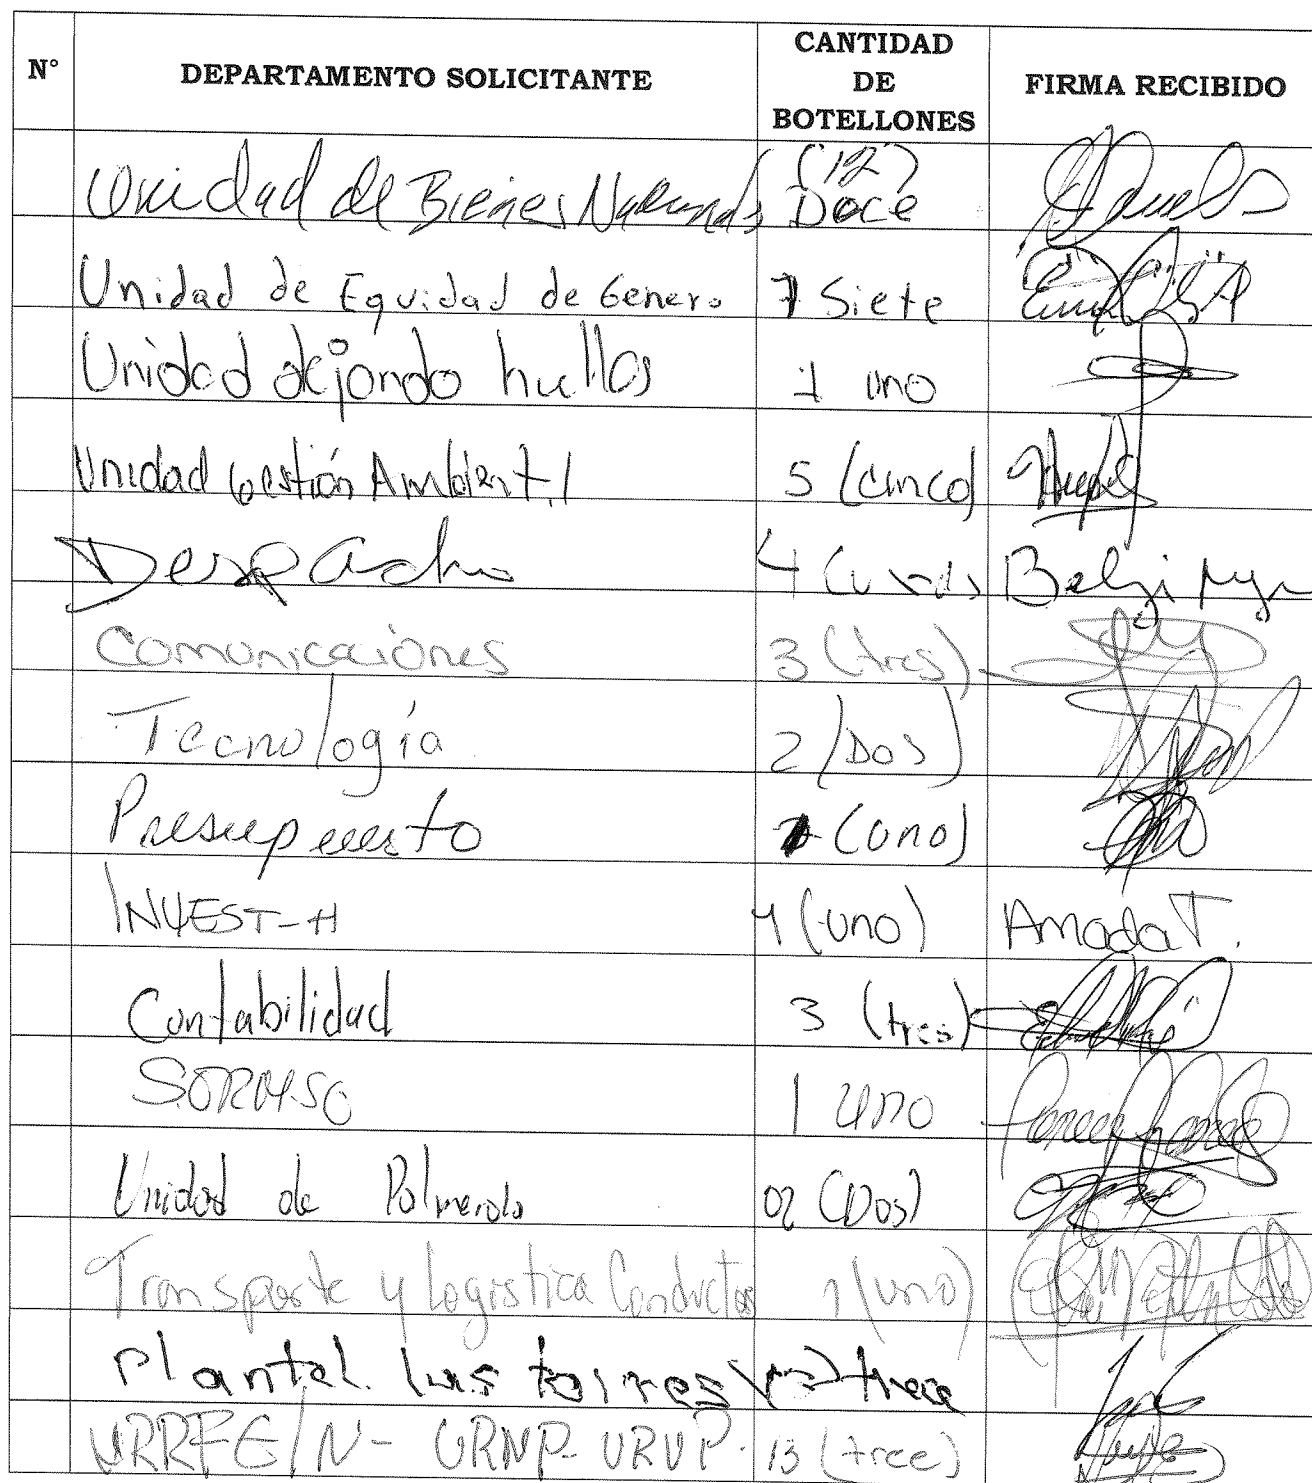 N° DEPARTAMENTO SOLICITANTE CANTIDAD DE BOTELLONES FIRMA RECIBIDO
Unidad de Bienes Nacionales (12) Doce
Unidad de Equidad de Genero 7 Siete
Unidad dejando huellas 1 uno
Unidad Gestión Ambiental 5 (cinco)
Despacho 4 Belgi
Comunicaciones 3 (tres)
Tecnología 2 (Dos)
Presupuesto 1 (uno)
INVEST-H 1 (uno) Amada T.
Contabilidad 3 (tres)
1 uno
Unidad de Palmerola 02 (Dos)
Transporte y logistica Conductos 1 (uno)
Plantel las torres trece
URNP- URVP. 13 (trece)